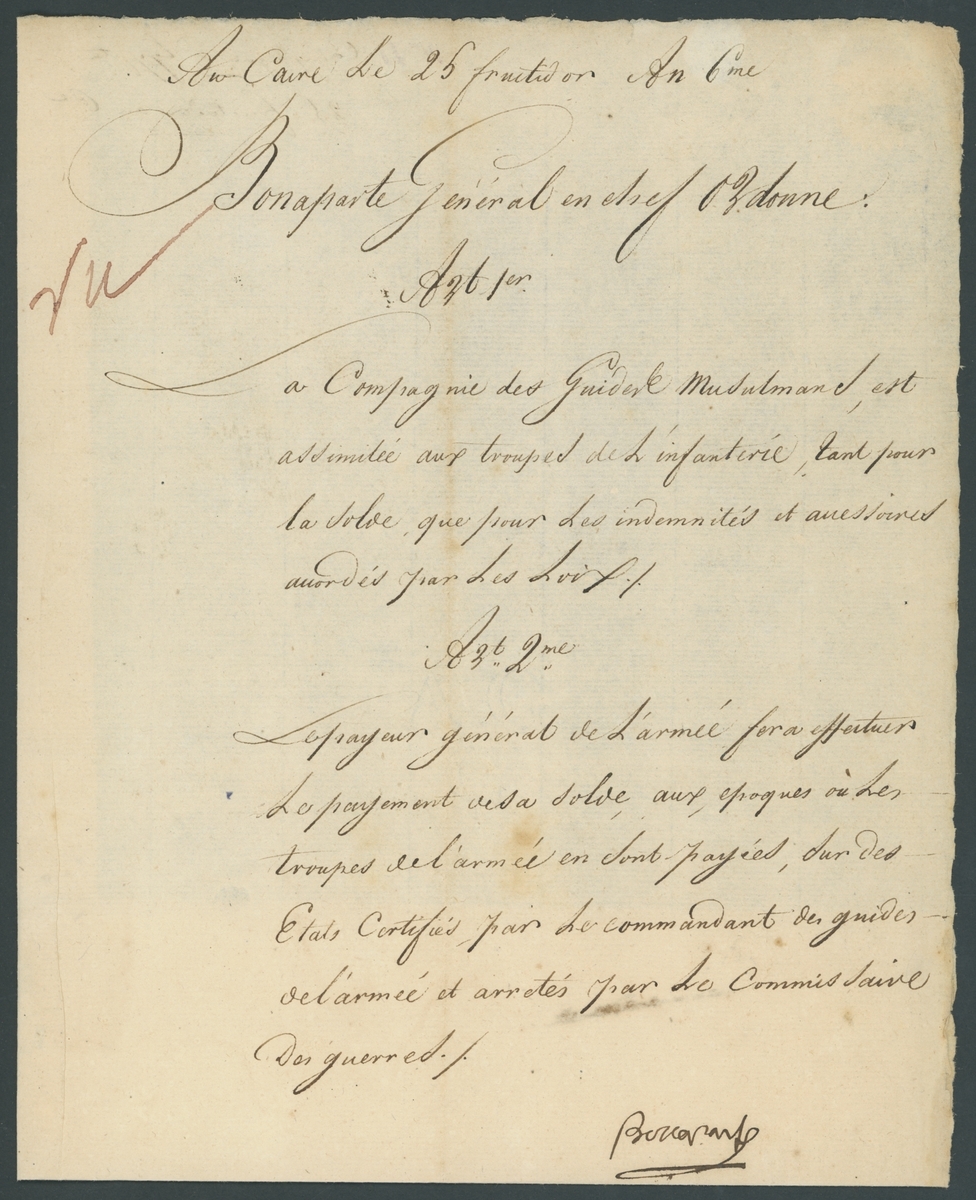 Au Caire Le 25 fructidor An 6me
Bonaparte Général en chef Ordonne :
Art 1er
vu
La Compagnie des Guides Musulmans, est
assimilée aux troupes de L'infanterie, tant pour
la solde, que pour Les indemnités et accessoires
accordés par Les Loix ./.
Art. 2me
Le payeur général de L'armée fera effectuer
Le payement de sa solde, aux, epoques où Les
troupes de l'armée en sont payées, sur des
Etats Certifiés, par Le commandant des guides
de l'armée et arretés par Le Commissaire
Des guerres ./.
Bonaparte